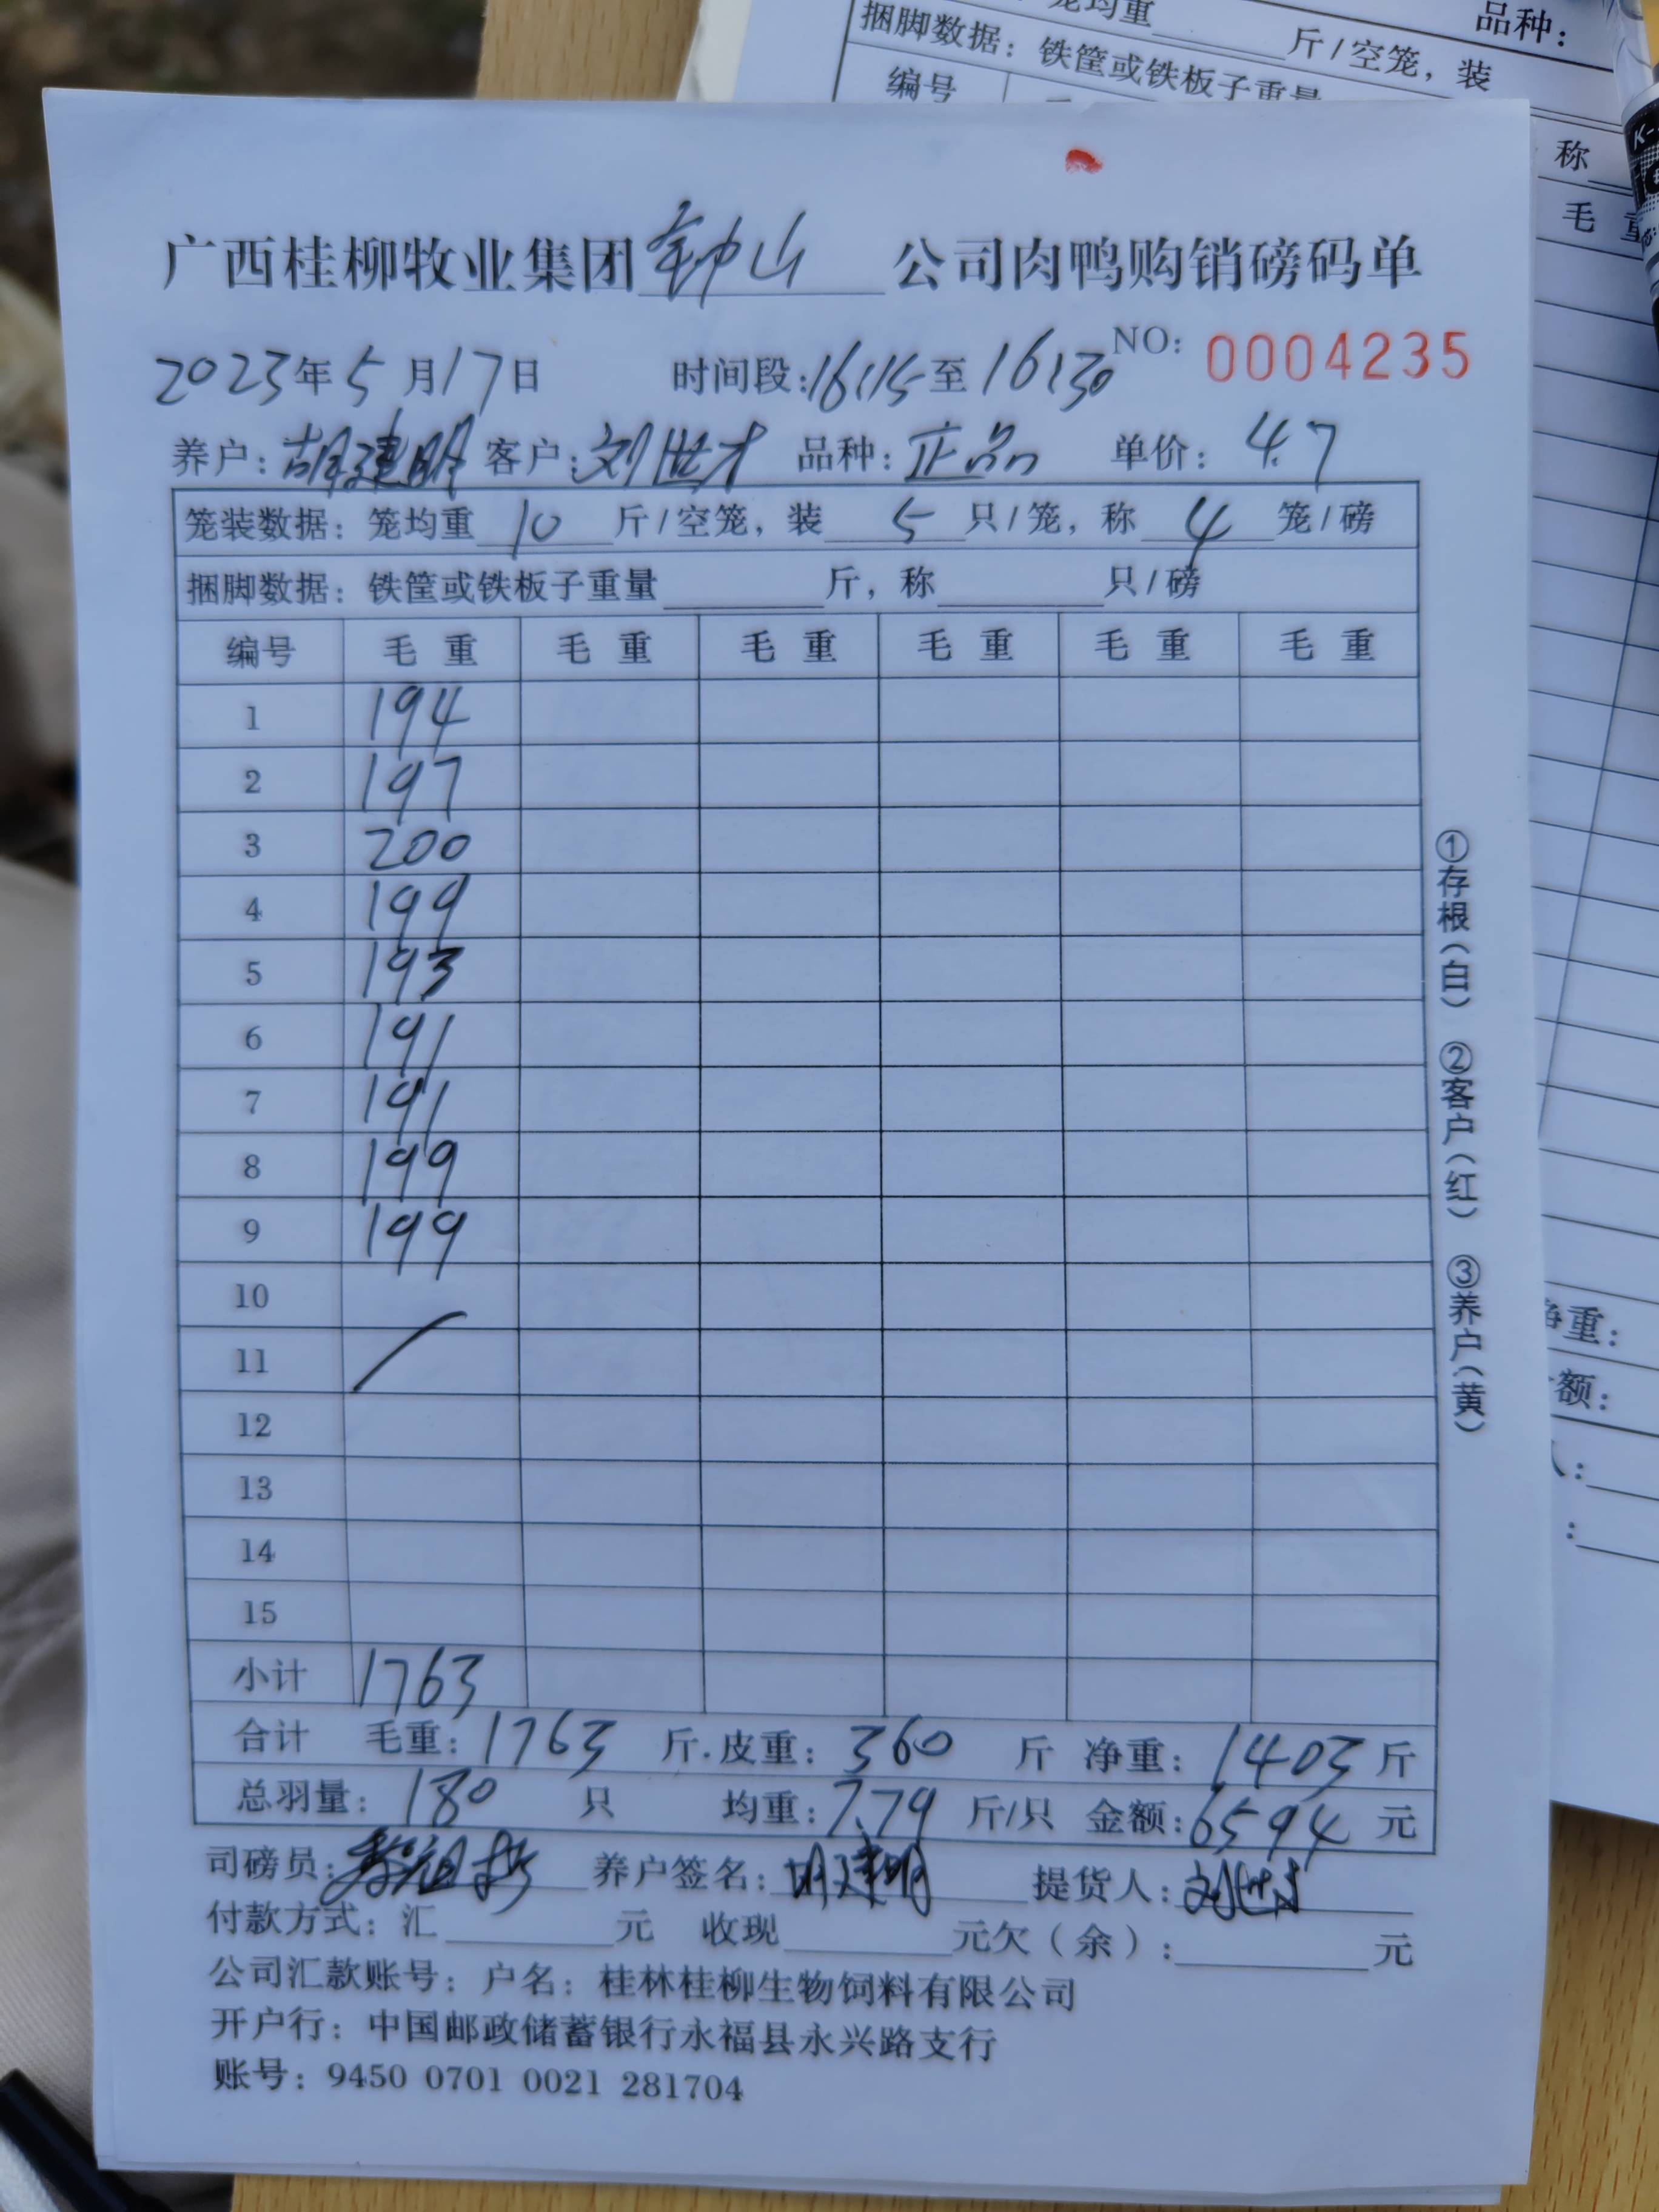 广西桂柳牧业集团钟山公司肉鸭购销磅码单
2023年5月17日 时间段:16:15至16:30 NO: 0004235
养户:胡建明 客户:刘世才 品种:正品 单价:4.7
笼装数据:笼均重10斤/空笼,装5只/笼,称4笼/磅
捆脚数据:铁筐或铁板子重量 斤,称 只/磅
编号 毛重 毛重 毛重 毛重 毛重 毛重
1 194
2 197
3 200
4 199
5 193
6 191
7 191
8 199
9 199
10
11
12
13
14
15
小计 1763
合计 毛重:1763斤.皮重:360斤 净重:1403斤
总羽量:180只 均重:7.79斤/只 金额:6594元
司磅员: 养户签名:胡建明 提货人:刘世才
付款方式:汇 元 收现 元欠(余): 元
公司汇款账号:户名:桂林桂柳生物饲料有限公司
开户行:中国邮政储蓄银行永福县永兴路支行
账号:9450 0701 0021 281704
①存根(白) ②客户(红) ③养户(黄)
笼均重 斤/空笼,装
品种:
捆脚数据:铁筐或铁板子重量
编号
称
毛重
净重:
额: